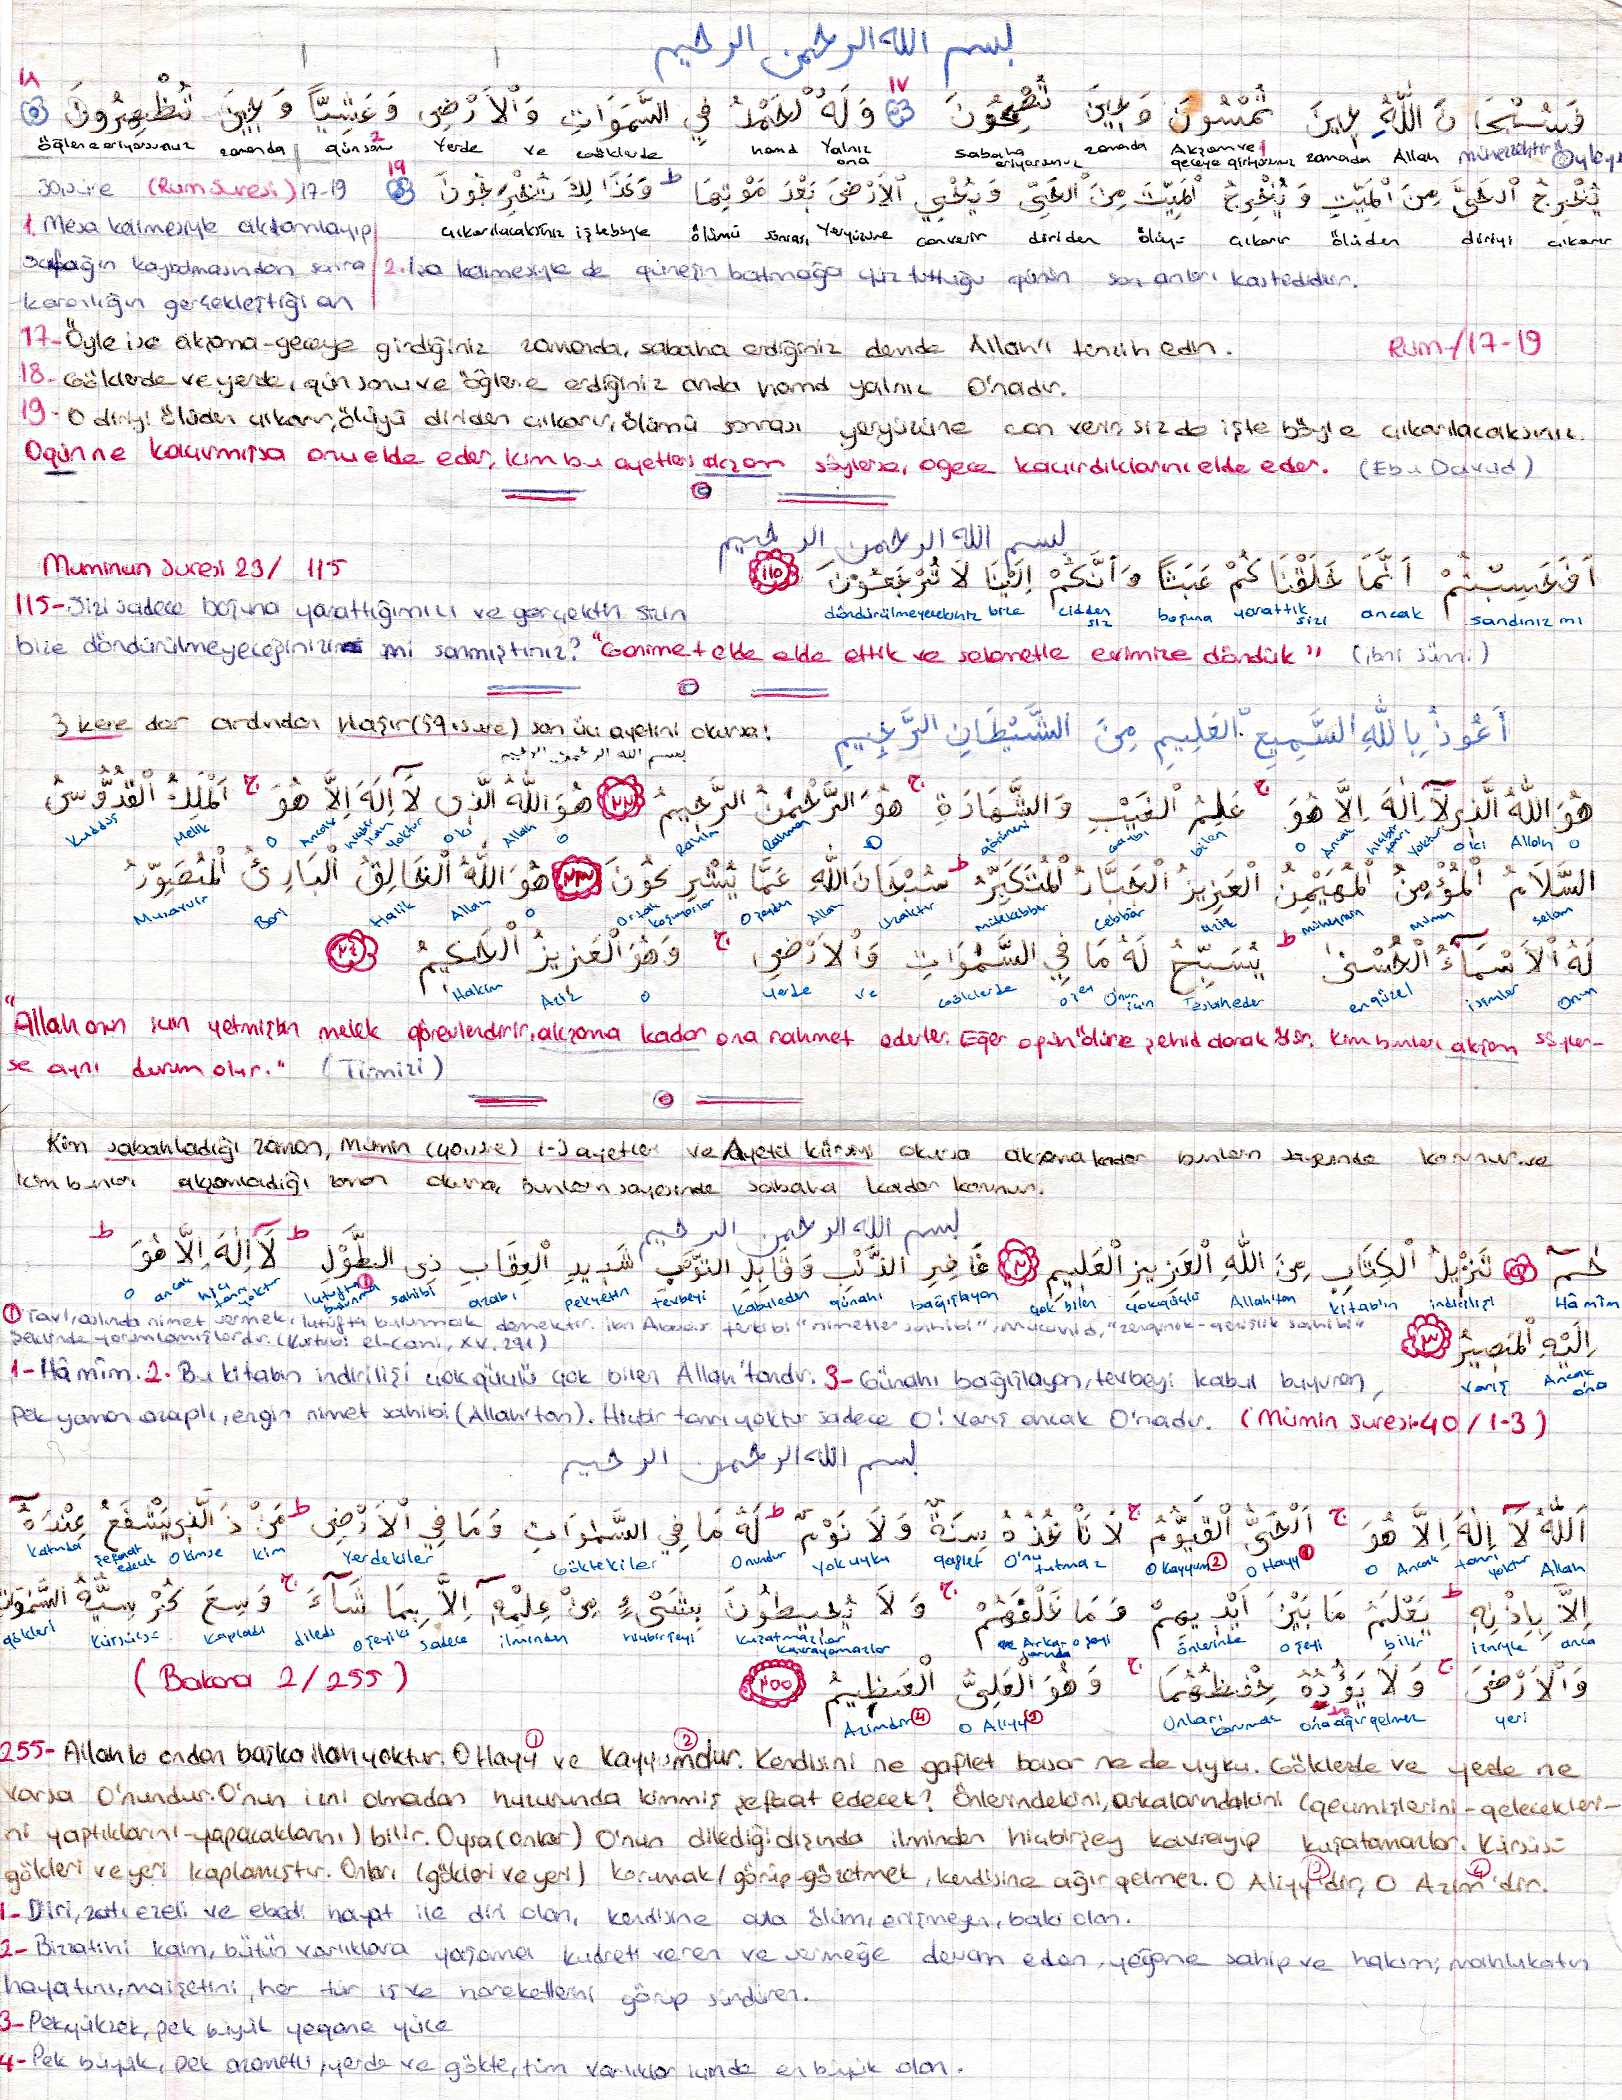 بسم الله الرحمن الرحيم
١٨ ١٧
فَسُبْحَانَ اللّٰهِ حِينَ تُمْسُونَ وَحِينَ تُصْبِحُونَ وَلَهُ الْحَمْدُ فِي السَّمٰوَاتِ وَالْاَرْضِ وَعَشِيًّا وَحِينَ تُظْهِرُونَ
Öyleyse münezzehtir Allah zamanda Akşam ve geceye giriyorsunuz zamanda sabaha eriyorsunuz Yalnız ona hamd Göklerde ve Yerde gün sonu 2 zamanda öğlene eriyorsunuz
يُخْرِجُ الْحَيَّ مِنَ الْمَيِّتِ وَيُخْرِجُ الْمَيِّتَ مِنَ الْحَيِّ وَيُحْيِي الْاَرْضَ بَعْدَ مَوْتِهَا ط وَكَذَا لِكَ تُخْرَجُونَ 19
30.sure (Rum Suresi) 17-19
çıkarır diriyi ölüden çıkarır ölüyü diriden can verir Yeryüzüne sonrası ölümü işte böyle çıkarılacaksınız
1. Mesa kelimesiyle akşamlayıp
şafağın kaybolmasından sonra
karanlığın gerçekleştiği an
2. kelimesiyle de güneşin batmağa yüz tuttuğu günün son anları kasteddir.
17- Öyle ise akşama-geceye girdiğiniz zamanda, sabaha erdiğiniz demde Allah'ı tenzih edin. Rum-/17-19
18- Göklerde ve yerde, gün sonu ve öğlene erdiğiniz anda hamd yalnız O'nadır.
19- O diriyi ölüden çıkarır, ölüyü diriden çıkarır, ölümü sonrası yeryüzüne can verir, siz de işte böyle çıkarılacaksınız.
O gün ne kaçırmışsa onu elde eder, kim bu ayetleri akşam söylerse, o gece kaçırdıklarını elde eder. (Ebu Davud)
بسم الله الرحمن الرحيم
Muminun Suresi 23/ 115
اَفَحَسِبْتُمْ اَنَّمَا خَلَقْنَاكُمْ عَبَثًا وَاَنَّكُمْ اِلَيْنَا لَا تُرْجَعُونَ ١١٥
sandınız mı ancak yarattık sizi boşuna cidden siz bize döndürülmeyeceksiniz
115- Sizi sadece boşuna yarattığımızı ve gerçekten sizin
bize döndürülmeyeceğinizi mi sanmıştınız? "Ganimet elde elde ettik ve selametle evimize döndük" (ibni Sünni)
3 kere der ardından Haşır (59.sure) son üç ayetini okursa!
اَعُوذُ بِاللّٰهِ السَّمِيعِ الْعَلِيمِ مِنَ الشَّيْطَانِ الرَّجِيمِ
بسم الله الرحمن الرحيم
هُوَ اللّٰهُ الَّذِي لَآ اِلٰهَ اِلَّا هُوَ ج عَلِمُ الْغَيْبِ وَالشَّهَادَةِ ج هُوَ الرَّحْمٰنُ الرَّحِيمُ ٢٢ هُوَ اللّٰهُ الَّذِي لَآ اِلٰهَ اِلَّا هُوَ ج اَلْمَلِكُ الْقُدُّوسُ
O Allah O ki Yoktur hiçbir tanrı Ancak O bilen Gaybı görüneni O Rahman Rahim O Allah O ki yoktur hiçbir ilah Ancak O Melik Kuddüs
السَّلَامُ الْمُؤْمِنُ الْمُهَيْمِنُ الْعَزِيزُ الْجَبَّارُ الْمُتَكَبِّرُ ط سُبْحَانَ اللّٰهِ عَمَّا يُشْرِكُونَ ٢٣ هُوَ اللّٰهُ الْخَالِقُ الْبَارِئُ الْمُصَوِّرُ
Selam Mümin müheymin Aziz Cebbâr mütekebbir Uzaktır Allah O şeyden Ortak koşuyorlar O Allah Halik Bari Musavvir
لَهُ الْاَسْمَآءُ الْحُسْنٰى ط يُسَبِّحُ لَهُ مَا فِي السَّمٰوَاتِ وَالْاَرْضِ ج وَهُوَ الْعَزِيزُ الْحَكِيمُ ٢٤
Onun isimler en güzel Tesbih eder O'nun için Göklerde ve Yerde O Aziz Hakim
"Allah onun için yetmişbin melek görevlendirir, akşama kadar ona rahmet ederler. Eğer o gün ölürse şehid olarak ölür. Kim bunları akşam söyler-
se aynı durum olur." (Tirmizi)
Kim sabahladığı zaman, Mümin (40.sure) 1-3 ayetler ve Ayetel kürsiyi okursa akşama kadar bunların sayesinde korunur ve
kim bunları akşamladığı zaman okursa, bunların sayesinde sabaha kadar korunur.
بسم الله الرحمن الرحيم
حٰمٓ تَنْزِيلُ الْكِتَابِ مِنَ اللّٰهِ الْعَزِيزِ الْعَلِيمِ ٢ غَافِرِ الذَّنْبِ وَقَابِلِ التَّوْبِ شَدِيدِ الْعِقَابِ ذِى الطَّوْلِ ط لَآ اِلٰهَ اِلَّا هُوَ ط
Hâ mîm indirilişi kitabın Allah'tan çok güçlü çok bilen bağışlayan günahı kabuleden tevbeyi pekyetin azabı sahibi lutufta bulunma 1 yoktur hiçbir tanrı ancak O
1 Tavl, aslında nimet vermek, lutufta bulunmak demektir. ibn Abbas terkibi "nimetler sahibi", Mücahid, "zenginlik-genişlik sahibi"
şeklinde yorumlamışlardır. (Kurtubi el-Cami, XV. 291)
اِلَيْهِ الْمَصِيرُ ٣
Ancak ona varış
1- Hâ mîm. 2. Bu kitabın indirilişi çok güçlü çok bilen Allah'tandır. 3- Günahı bağışlayan, tevbeyi kabul buyuran,
pek yaman azaplı, engin nimet sahibi (Allah'tan). Hiçbir tanrı yoktur sadece O! Varış ancak O'nadır. (Mümin Suresi-40/1-3)
بسم الله الرحمن الرحيم
اَللّٰهُ لَآ اِلٰهَ اِلَّا هُوَ ج اَلْحَيُّ الْقَيُّومُ ج لَا تَاْخُذُهُ سِنَةٌ وَلَا نَوْمٌ ط لَهُ مَا فِي السَّمٰوَاتِ وَمَا فِي الْاَرْضِ ط مَنْ ذَا الَّذِي يَشْفَعُ عِنْدَهُٓ
Allah yoktur tanrı Ancak O O Hayy 1 O Kayyum 2 O'nu tutmaz gaflet yok uyku Onundur Göktekiler Yerdekiler kim O kimse şefaat edecek katında
اِلَّا بِاِذْنِهِ ط يَعْلَمُ مَا بَيْنَ اَيْدِيهِمْ وَمَا خَلْفَهُمْ ج وَلَا يُحِيطُونَ بِشَىْءٍ مِنْ عِلْمِهِٓ اِلَّا بِمَا شَآءَ ج وَسِعَ كُرْسِيُّهُ السَّمٰوَاتِ
izniyle bilir O şeyi önlerinde Arkalarında o şeyi kuşatmazlar kavrayamazlar hiçbirşeyi ilminden sadece O şeyi ki diledi Kapladı Kürsüsü gökleri
وَالْاَرْضَ ج وَلَا يَؤُدُهُ حِفْظُهُمَا ج وَهُوَ الْعَلِيُّ الْعَظِيمُ ٢٥٥
(Bakara 2/255)
yeri Ona ağır gelmez Onları korumak O Aliyy 3 Azimdir 4
255- Allah ki ondan başka ilah yoktur. O Hayy 1 ve Kayyumdur. 2 Kendisini ne gaflet basar ne de uyku. Göklerde ve yerde ne
varsa O'nundur. O'nun izni olmadan huzurunda kimmiş şefaat edecek? Önlerindekini, arkalarındakini (geçmişlerini-gelecekleri-
ni yaptıklarını-yapacaklarını) bilir. Oysa (onlar) O'nun dilediği dışında ilminden hiçbirşey kavrayıp kuşatamazlar. Kürsüsü
gökleri ve yeri kaplamıştır. Onları (gökleri ve yeri) korumak/görüp-gözetmek, kendisine ağır gelmez. O Aliyy 3 'dir, O Azim 4 'dir.
1- Diri, zatı ezeli ve ebedi hayat ile diri olan, kendisine asla ölüm erişmeyen, baki olan.
2- Bizzatihi kaim, bütün varlıklara yaşama kudreti veren ve vermeğe devam eden, yegane sahip ve hakim; mahlukatın
hayatını, maişetini, her tür iş ve hareketlerini görüp sürdüren.
3- Pekyüksek, pek büyük yegane yüce
4- Pek büyük, pek azametli, yerde ve gökte, tüm varlıklar içinde en büyük olan.